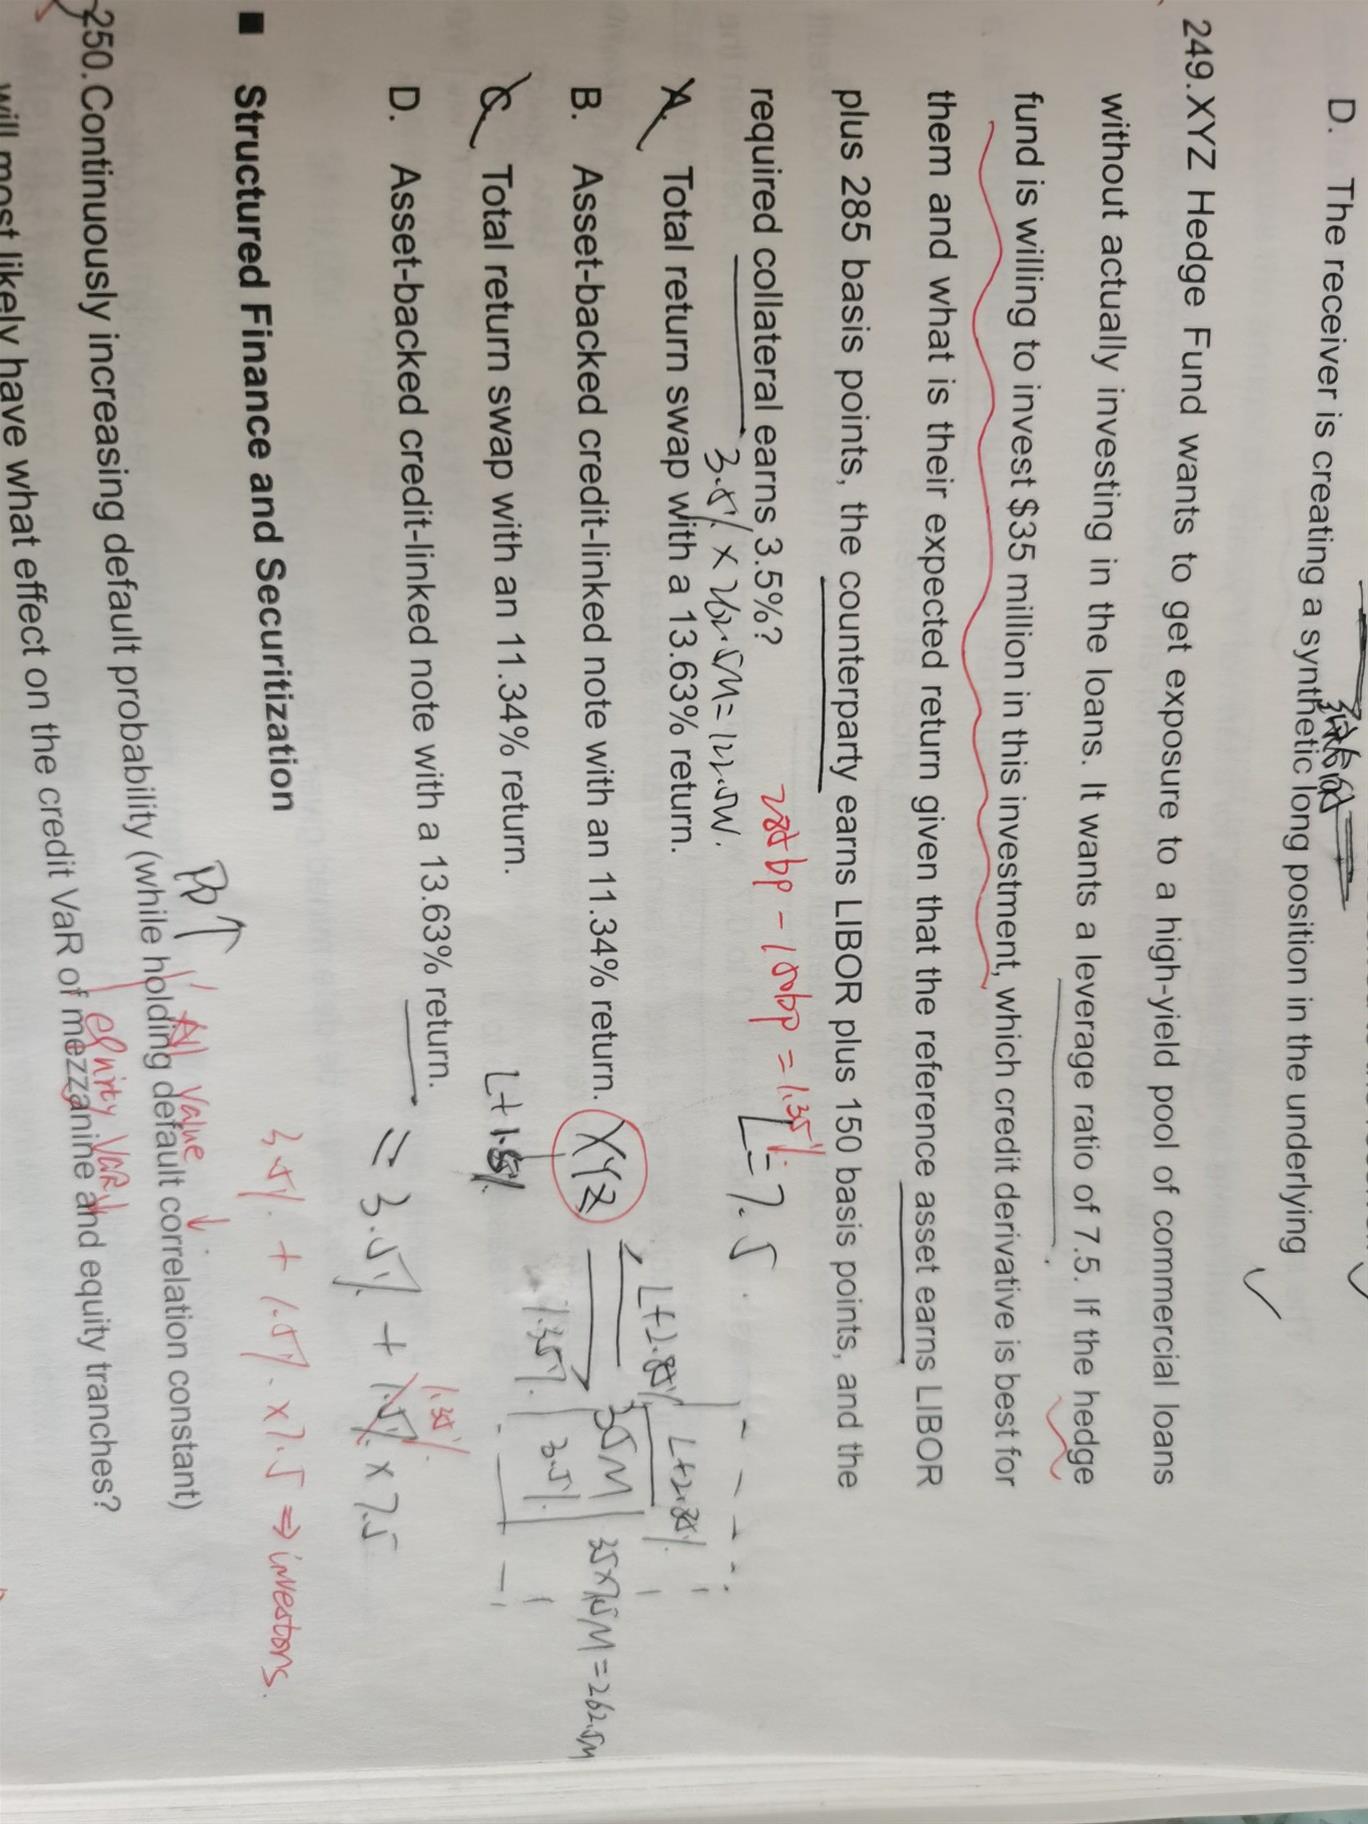 D. The receiver is creating a synthetic long position in the underlying
249.XYZ Hedge Fund wants to get exposure to a high-yield pool of commercial loans
without actually investing in the loans. It wants a leverage ratio of 7.5. If the hedge
fund is willing to invest $35 million in this investment, which credit derivative is best for
them and what is their expected return given that the reference asset earns LIBOR
plus 285 basis points, the counterparty earns LIBOR plus 150 basis points, and the
required collateral earns 3.5%?
285bp - 150bp = 1.35%
L = 7.5
3.5% × 262.5M = 122.5W.
A. Total return swap with a 13.63% return.
L+2.85%
L+2.85%
B. Asset-backed credit-linked note with an 11.34% return.
XYZ
35M
35×7.5M = 262.5M
C. Total return swap with an 11.34% return.
L+1.5%
1.35%
3.5%
D. Asset-backed credit-linked note with a 13.63% return.
= 3.5% + 1.35% × 7.5
■ Structured Finance and Securitization
3.5% + 1.5% × 7.5 ⇒ investors.
PD ↑
value ↓
250.Continuously increasing default probability (while holding default correlation constant)
equity VaR ↓
will most likely have what effect on the credit VaR of mezzanine and equity tranches?